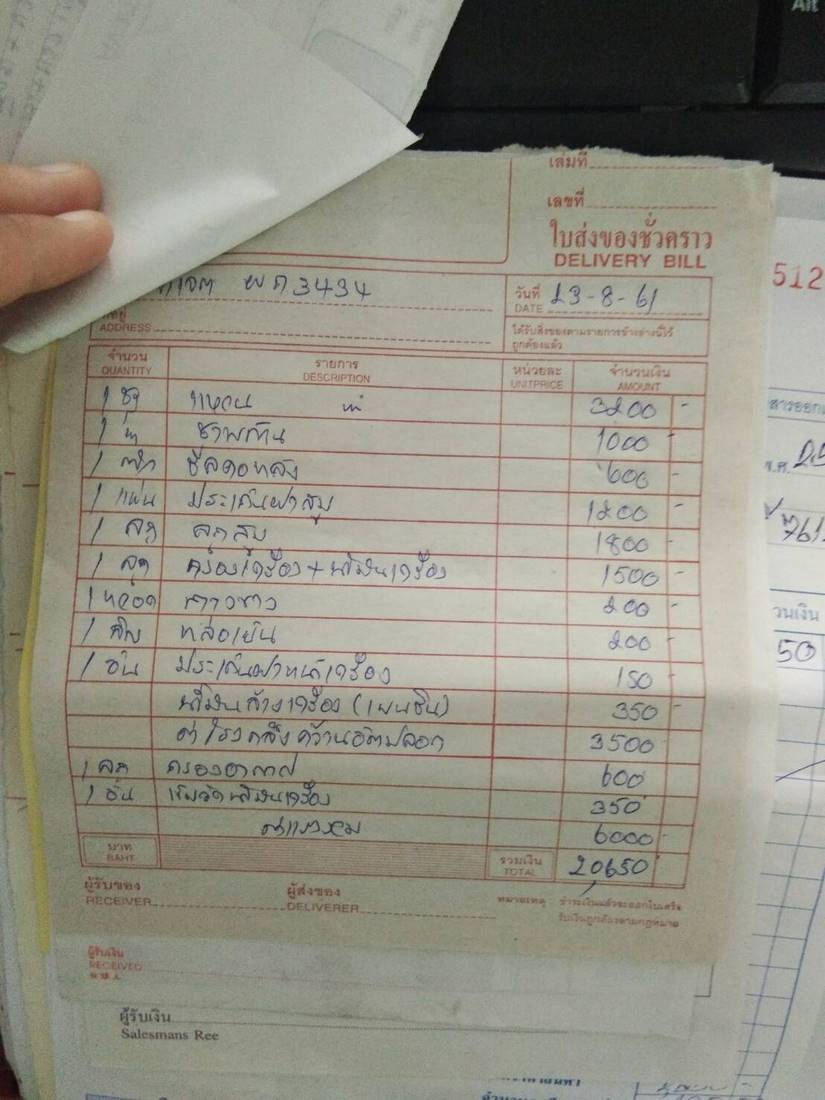 Alt
เล่มที่
เลขที่
ใบส่งของชั่วคราว
DELIVERY BILL
512
3434
วันที่ 23-8-61
DATE
ที่อยู่
ADDRESS
ได้รับสิ่งของตามรายการข้างล่างนี้ไว้
ถูกต้องแล้ว
จำนวน รายการ หน่วยละ จำนวนเงิน
QUANTITY DESCRIPTION UNITPRICE AMOUNT
1 ชุด แหวน 3200 -
1 ชาพก้น 1000 -
1 ซีลคอหลัง 600 -
1 แผ่น ประเก็นฝาสูบ 1200 -
1 ชุด ลูกสูบ 1800 -
1 ลูก กรองเครื่อง + น้ำมันเครื่อง 1500 -
1 หลอด กาวขาว 200 -
1 หล่อเย็น 200 -
1 อัน ประเก็นฝาหน้าเครื่อง 150 -
น้ำมันล้างเครื่อง (เบนซิน) 350 -
ค่าโรงกลึงคว้านอัดปลอก 3500 -
1 ลูก กรองอากาศ 600
1 อัน เข็มวัดน้ำมันเครื่อง 350
ค่าแรงรวม 6000 -
บาท รวมเงิน 20650
BAHT TOTAL
ผู้รับของ ผู้ส่งของ หมายเหตุ ชำระเงินแล้วจะออกใบเสร็จ
RECEIVER DELIVERER รับเงินถูกต้องตามกฎหมาย
ผู้รับเงิน
RECEIVED
ผู้รับเงิน
Salesmans Ree
พ.ศ.
761
วนเงิน
50